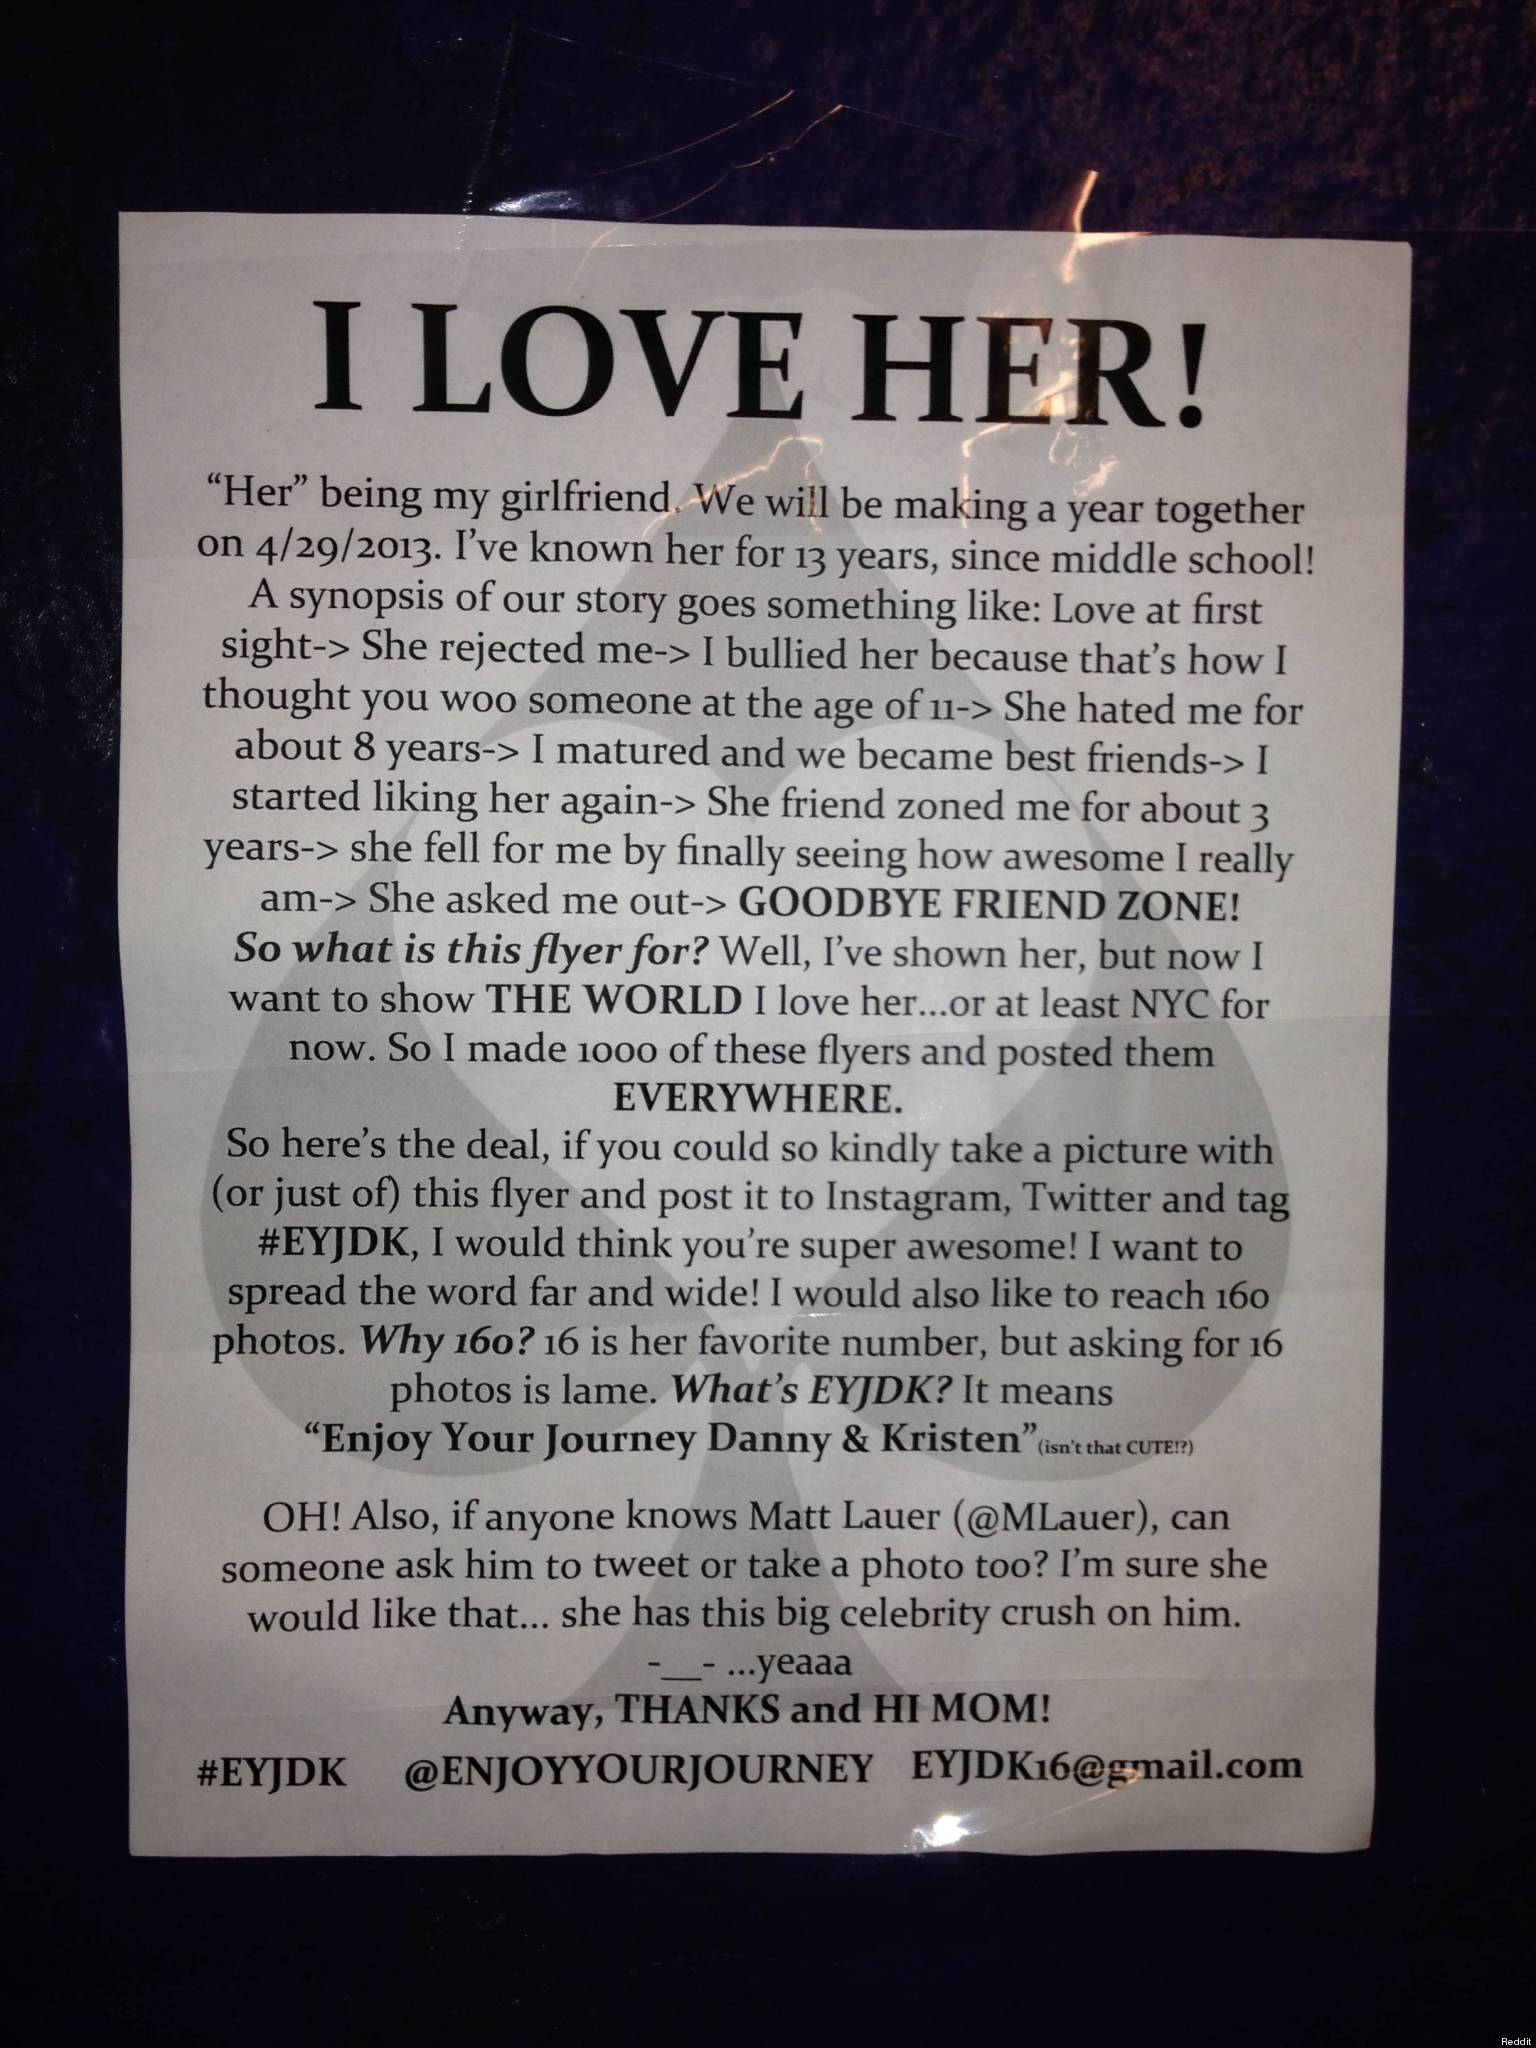 I LOVE HER!
“Her” being my girlfriend. We will be making a year together
on 4/29/2013. I’ve known her for 13 years, since middle school!
A synopsis of our story goes something like: Love at first
sight-> She rejected me-> I bullied her because that’s how I
thought you woo someone at the age of 11-> She hated me for
about 8 years-> I matured and we became best friends-> I
started liking her again-> She friend zoned me for about 3
years-> she fell for me by finally seeing how awesome I really
am-> She asked me out-> GOODBYE FRIEND ZONE!
So what is this flyer for? Well, I’ve shown her, but now I
want to show THE WORLD I love her...or at least NYC for
now. So I made 1000 of these flyers and posted them
EVERYWHERE.
So here’s the deal, if you could so kindly take a picture with
(or just of) this flyer and post it to Instagram, Twitter and tag
#EYJDK, I would think you’re super awesome! I want to
spread the word far and wide! I would also like to reach 160
photos. Why 160? 16 is her favorite number, but asking for 16
photos is lame. What’s EYJDK? It means
“Enjoy Your Journey Danny & Kristen”(isn't that CUTE!?)
OH! Also, if anyone knows Matt Lauer (@MLauer), can
someone ask him to tweet or take a photo too? I’m sure she
would like that... she has this big celebrity crush on him.
-__- ...yeaaa
Anyway, THANKS and HI MOM!
#EYJDK @ENJOYYOURJOURNEY EYJDK16@gmail.com
Reddit